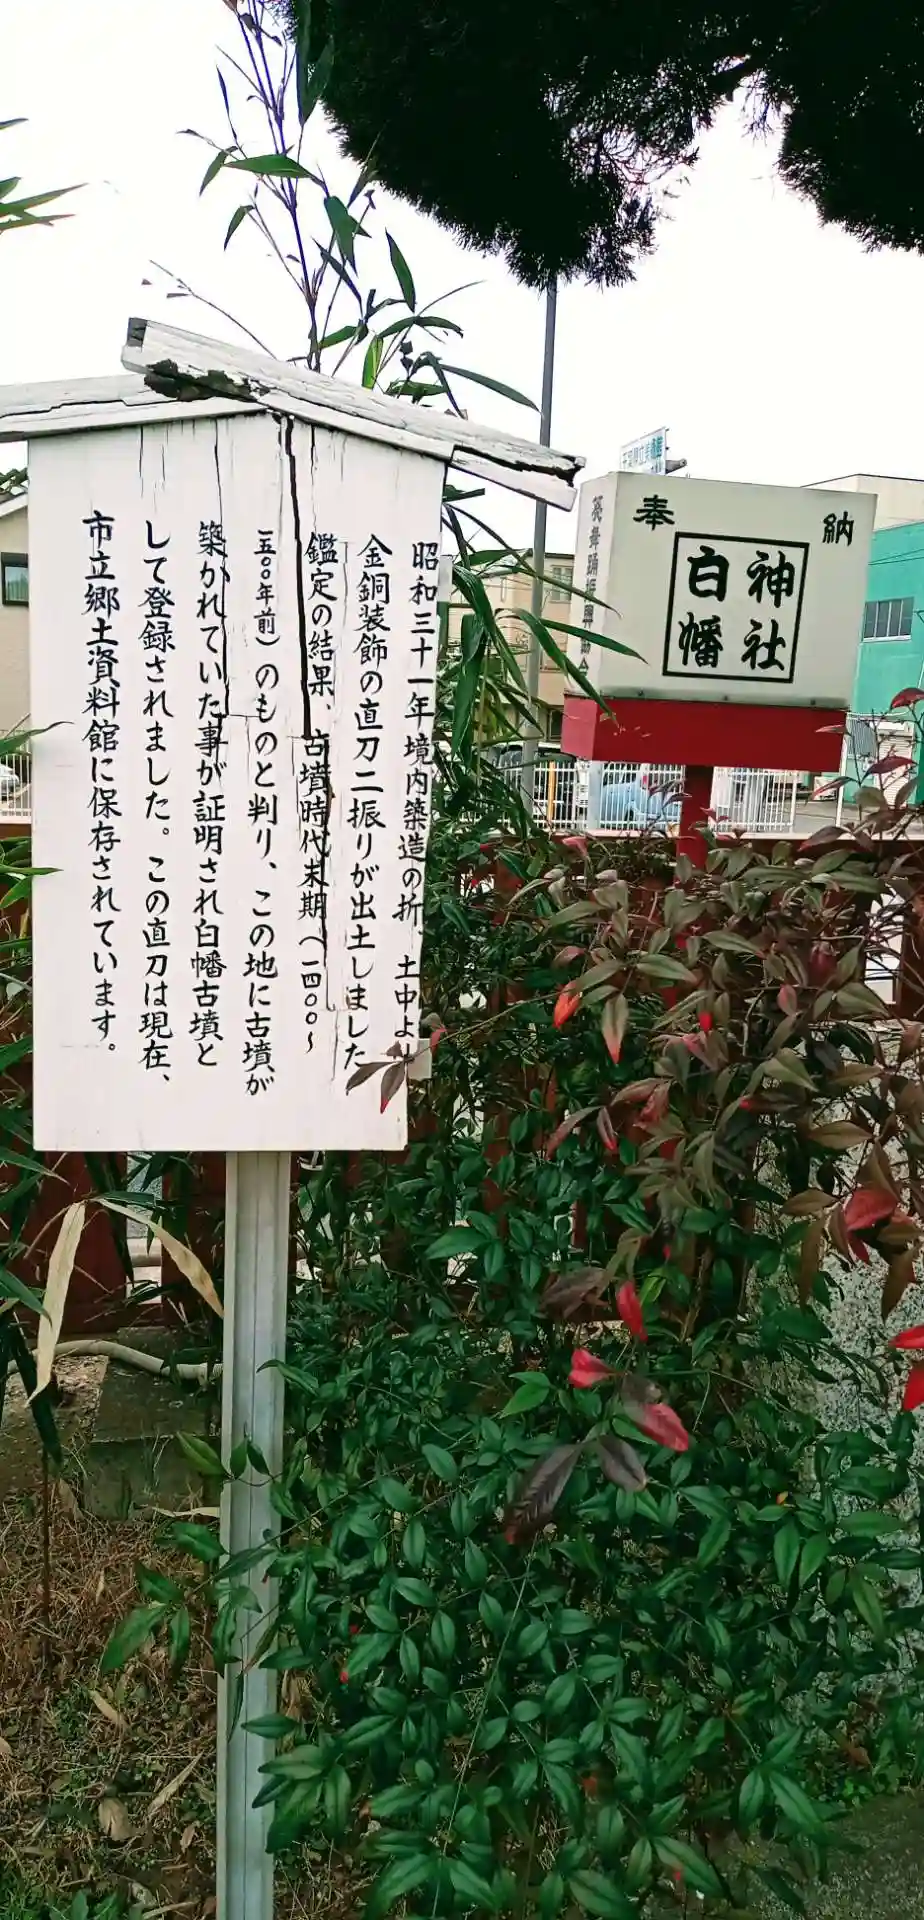 昭和三十一年境内築造の折、土中より
金銅装飾の直刀二振りが出土しました
鑑定の結果、古墳時代末期(一四〇〇～
一五〇〇年前)のものと判り、この地に古墳が
築かれていた事が証明され白幡古墳と
して登録されました。この直刀は現在、
市立郷土資料館に保存されています。
奉納
神社
白幡